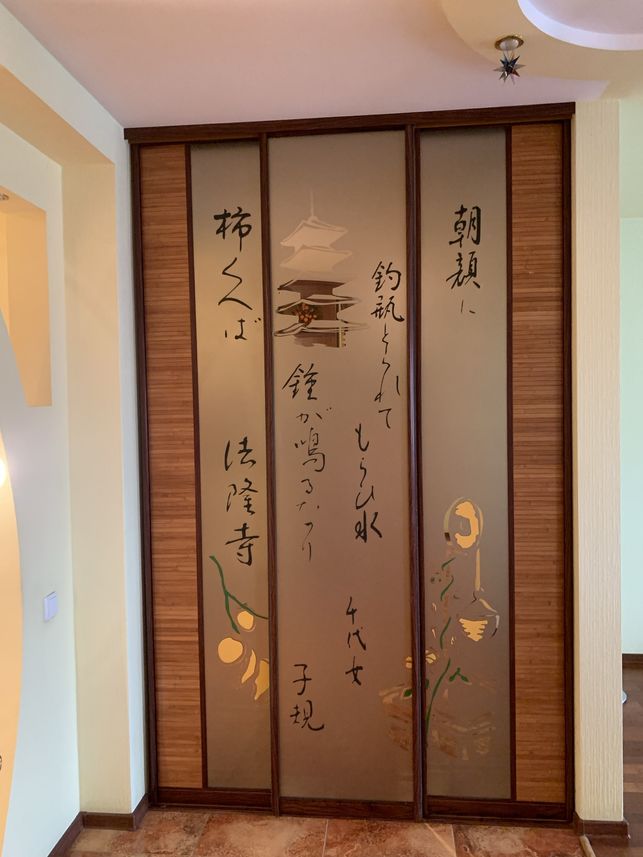 朝顔に
釣瓶とられて
もらひ水
千代女
柿くへば
鐘が鳴るなり
法隆寺
子規